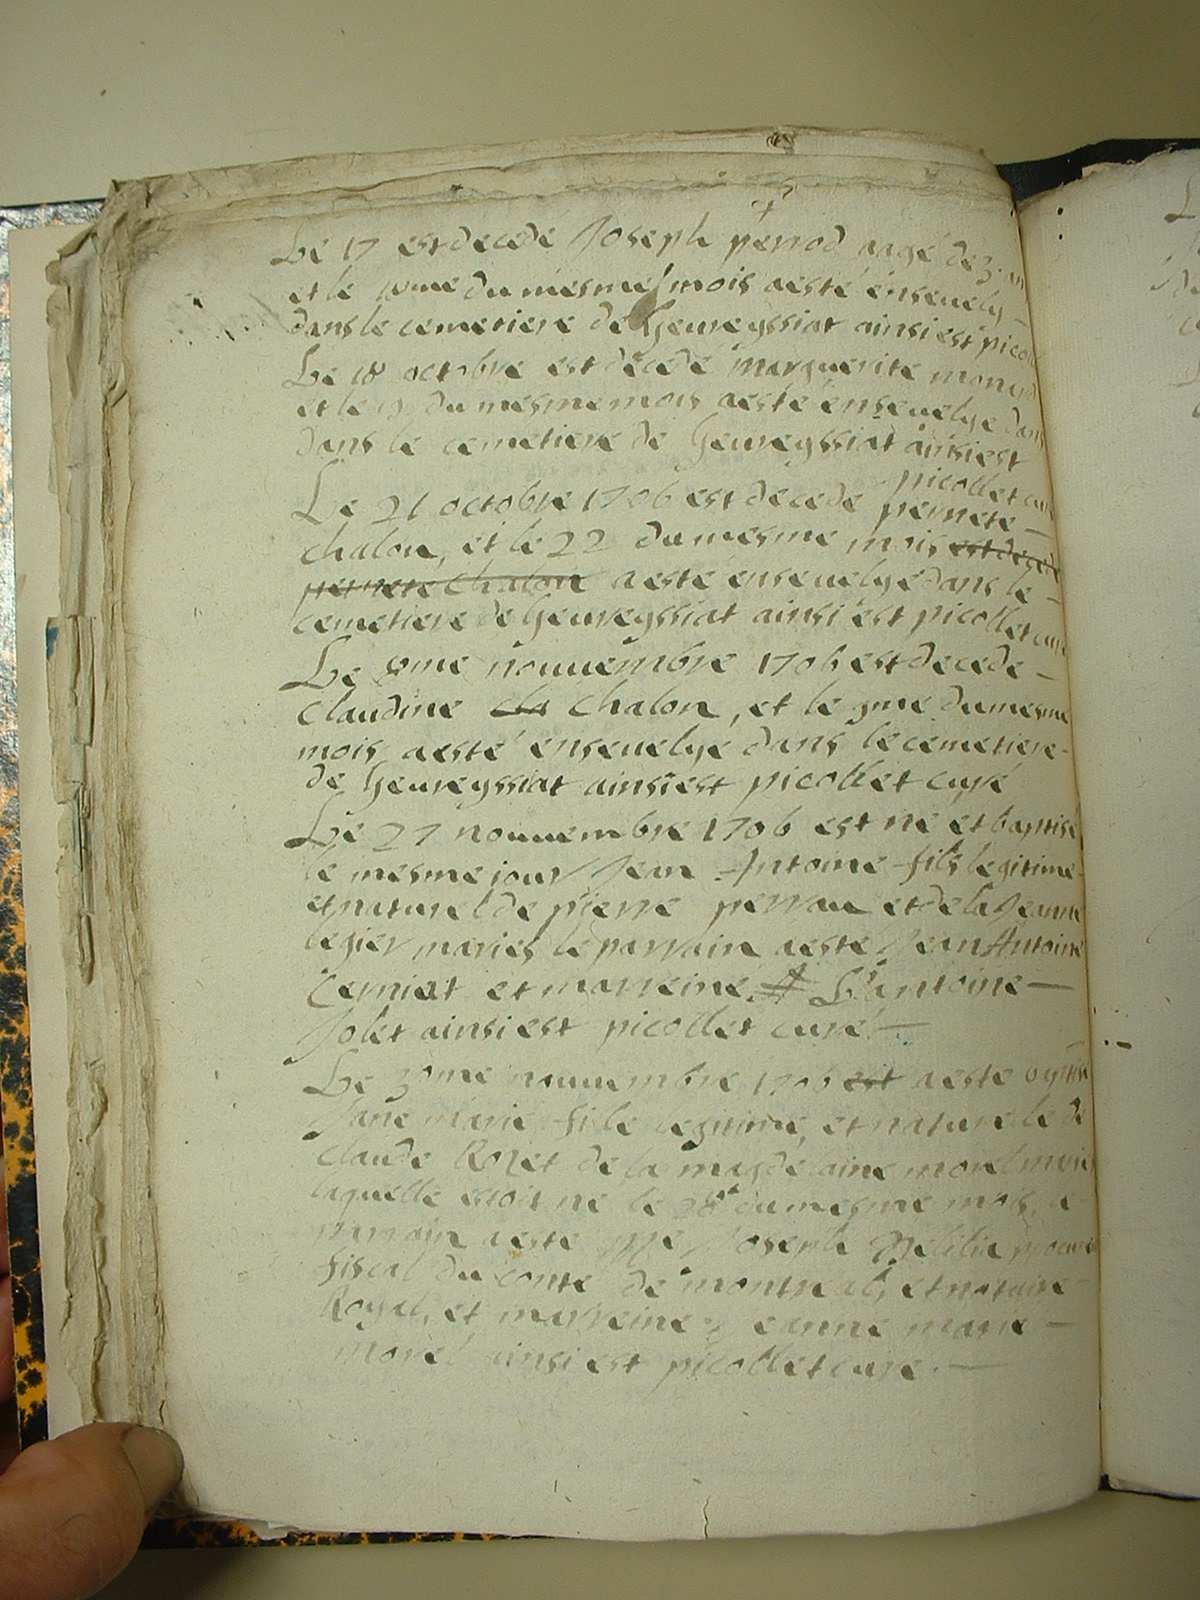 Le 17 est decedé Joseph perrod aagé de 3 an
et le 18me du mesme mois aesté enseuely
dans le cemetiere de Geureyssiat ainsi est picol
Le 18 octobre est decedé marguerite monard
et le 19 du mesme mois aesté enseuelye dans
dans le cemetiere de Geureyssiat ainsi est
picollet curé
Le 21 octobre 1706 est decede pernete
chalon, et le 22 du mesme mois est decede
pernete Chalon aesté enseuelye dans le
cemetiere de Geureyssiat ainsi est picollet curé
Le 8me nouuembre 1706 est decede
Claudine cha chalon, et le 9me du mesme
mois aesté enseuelye dans le cemetiere
de Geureyssiat ainsi est picollet curé
Le 27 nouuembre 1706 est né et baptisé
le mesme jour Jean Antoine fils legitime
et naturel de pierre perrau et de la Jeanne
legier mariés le parrain aesté Jean Antoine
Cerniat et marreine Cl antoine
Jolet ainsi est picollet curé
Le 30me nouuembre 1706 est aesté
Jane marie fille legitime, et naturele de
claude Rozet de la magdelaine morel mariés
laquelle estoit né le 28e du mesme mois, le
parrain aesté Joseph
fiscal du conte de montreal, et notaire
Royal, et marreine Jeanne marie
morel ainsi est picollet cure